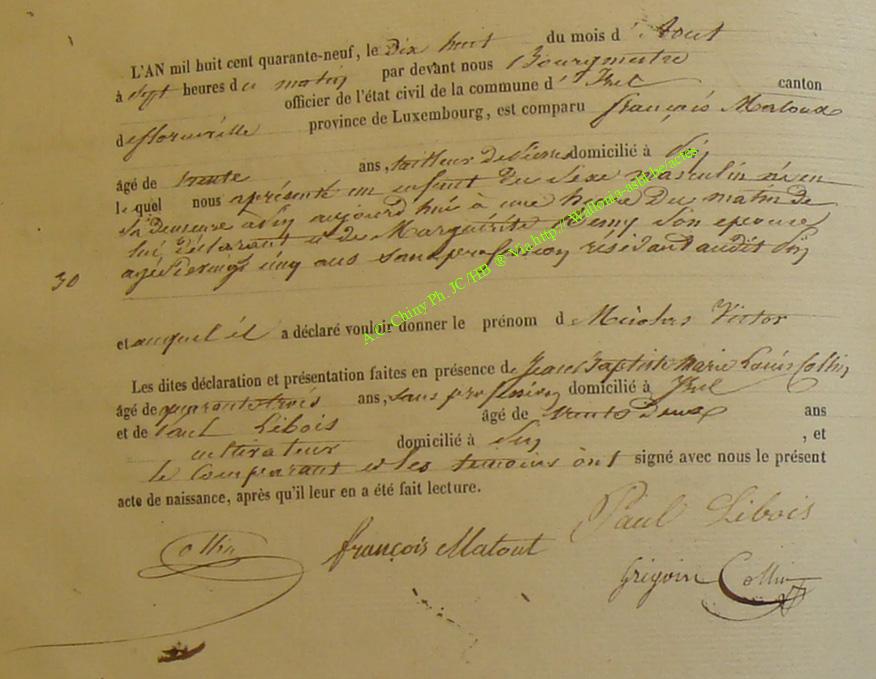 L'AN mil huit cent quarante-neuf, le Dix huit du mois d'Aout
à sept heures du matin par devant nous Bourgmestre
officier de l'état civil de la commune d'Izel canton
de florenville province de Luxembourg, est comparu françois Matout
âgé de trente ans, tailleur de Pierres domicilié à Pin
lequel nous a présenté un enfant du sexe masculin né en
sa demeure à Pin aujourd'hui à une heure du matin de
lui Déclarant et de Marguérite son epouse
agée de vingt cinq ans sans profession résidant audit Pin
30
et auquel il a déclaré vouloir donner le prénom de Nicolas Victor
Les dites déclaration et présentation faites en présence de Jean Baptiste Marie Louis Collin
âgé de quarante trois ans, sans profession domicilié à Izel
et de Paul Libois âgé de trente Deux ans
cultivateur domicilié à Pin, et
le Comparant et les temoins ont signé avec nous le présent
acte de naissance, après qu'il leur en a été fait lecture.
Paul Libois
Collin françois Matout
Grégoire Collin
A.G. Chiny Ph. JC /HB @ Via http://Wallonia-asbl.be/actes